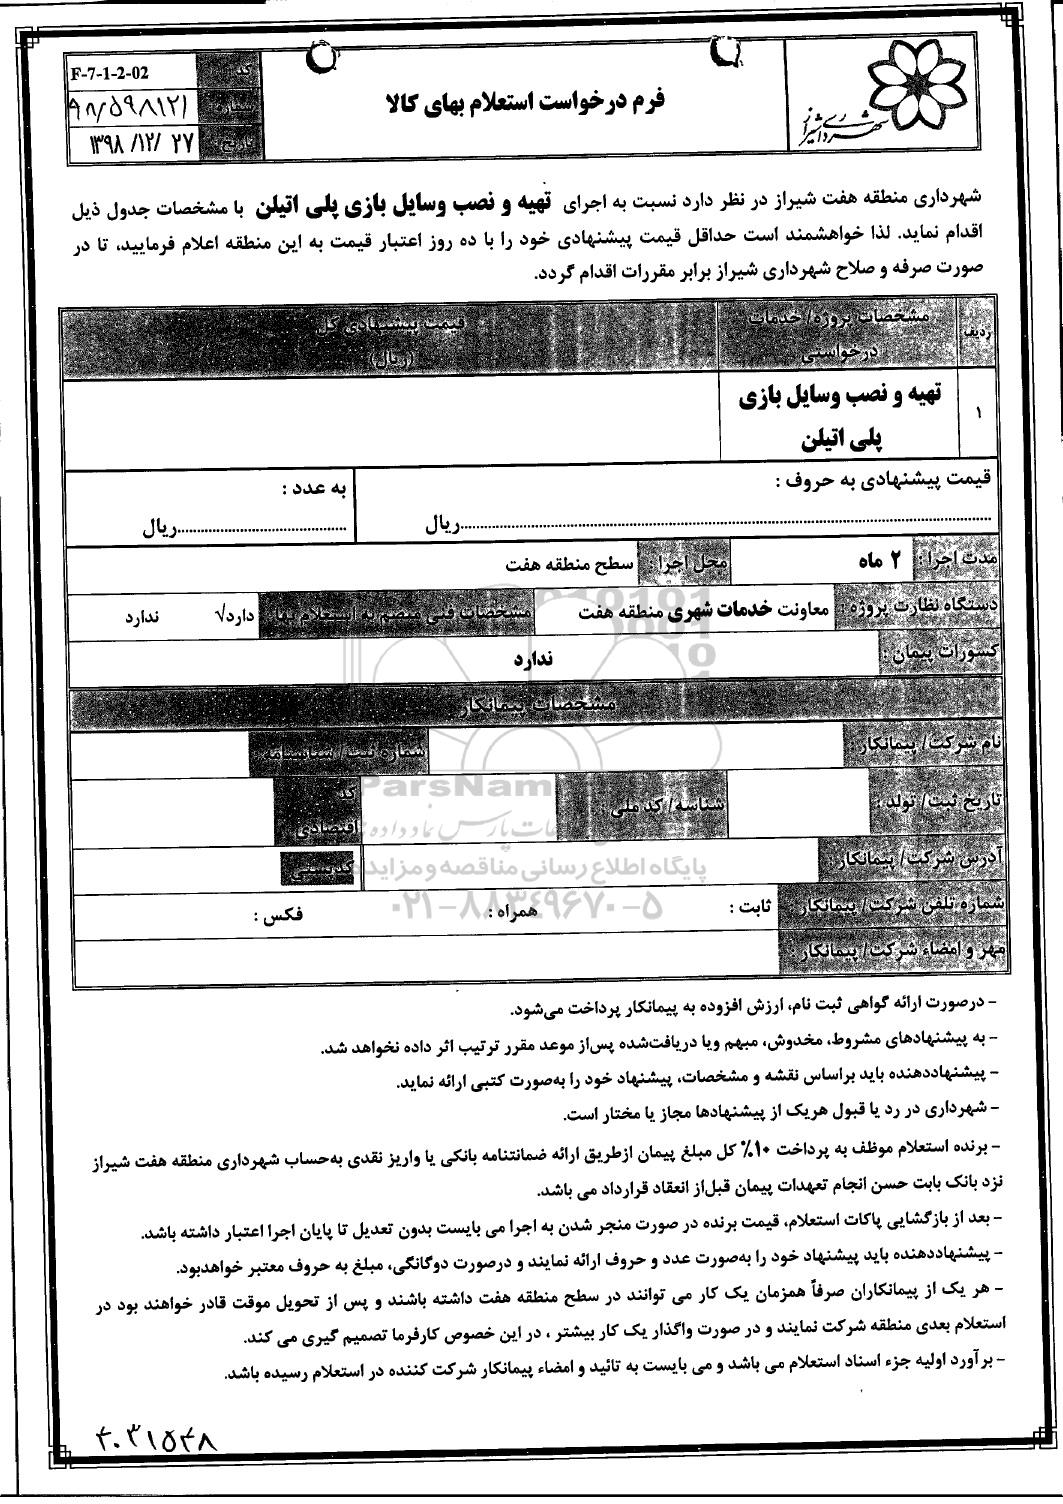 شهرداری شیراز
فرم درخواست استعلام بهای کالا
کد F-7-1-2-02
شماره ۹۸/۵۹۸۱۲۱
تاریخ: ۱۳۹۸/۱۲/ ۲۷
شهرداری منطقه هفت شیراز در نظر دارد نسبت به اجرای تهیه و نصب وسایل بازی پلی اتیلن با مشخصات جدول ذیل
اقدام نماید. لذا خواهشمند است حداقل قیمت پیشنهادی خود را با ده روز اعتبار قیمت به این منطقه اعلام فرمایید، تا در
صورت صرفه و صلاح شهرداری شیراز برابر مقررات اقدام گردد.
ردیف مشخصات پروژه/ خدمات درخواستی قیمت پیشنهادی کل (ریال)
۱ تهیه و نصب وسایل بازی
پلی اتیلن
قیمت پیشنهادی به حروف : به عدد :
..........ریال ..........ریال
مدت اجرا : ۲ ماه محل اجرا : سطح منطقه هفت
دستگاه نظارت پروژه : معاونت خدمات شهری منطقه هفت مشخصات فنی منضم به استعلام بها دارد√ ندارد
کسورات پیمان : ندارد
مشخصات پیمانکار
نام شرکت/ پیمانکار : شماره ثبت/ شناسنامه
تاریخ ثبت/ تولد : شناسه/ کد ملی کد اقتصادی
آدرس شرکت/ پیمانکار : کدپستی
شماره تلفن شرکت/ پیمانکار ثابت : همراه : فکس :
مهر و امضاء شرکت/ پیمانکار :
ParsNam
پایگاه اطلاع رسانی مناقصه و مزایده
۰۲۱-۸۸۳۴۹۶۷۰-۵
- درصورت ارائه گواهی ثبت نام، ارزش افزوده به پیمانکار پرداخت می‌شود.
- به پیشنهادهای مشروط، مخدوش، مبهم ویا دریافت‌شده پس‌از موعد مقرر ترتیب اثر داده نخواهد شد.
- پیشنهاددهنده باید براساس نقشه و مشخصات، پیشنهاد خود را به‌صورت کتبی ارائه نماید.
- شهرداری در رد یا قبول هریک از پیشنهادها مجاز یا مختار است.
- برنده استعلام موظف به پرداخت ۱۰% کل مبلغ پیمان ازطریق ارائه ضمانتنامه بانکی یا واریز نقدی به‌حساب شهرداری منطقه هفت شیراز
نزد بانک بابت حسن انجام تعهدات پیمان قبل‌از انعقاد قرارداد می باشد.
- بعد از بازگشایی پاکات استعلام، قیمت برنده در صورت منجر شدن به اجرا می بایست بدون تعدیل تا پایان اجرا اعتبار داشته باشد.
- پیشنهاددهنده باید پیشنهاد خود را به‌صورت عدد و حروف ارائه نمایند و درصورت دوگانگی، مبلغ به حروف معتبر خواهدبود.
- هر یک از پیمانکاران صرفاً همزمان یک کار می توانند در سطح منطقه هفت داشته باشند و پس از تحویل موقت قادر خواهند بود در
استعلام بعدی منطقه شرکت نمایند و در صورت واگذار یک کار بیشتر ، در این خصوص کارفرما تصمیم گیری می کند.
- برآورد اولیه جزء اسناد استعلام می باشد و می بایست به تائید و امضاء پیمانکار شرکت کننده در استعلام رسیده باشد.
۴۰۳۱۵۴۸